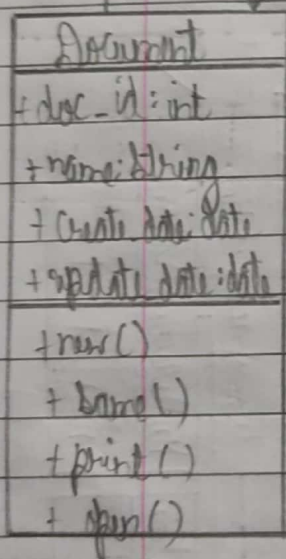 Document
+doc_id:int
+name:String
+Create date:date
+update date:date
+new()
+()
+print()
+open()